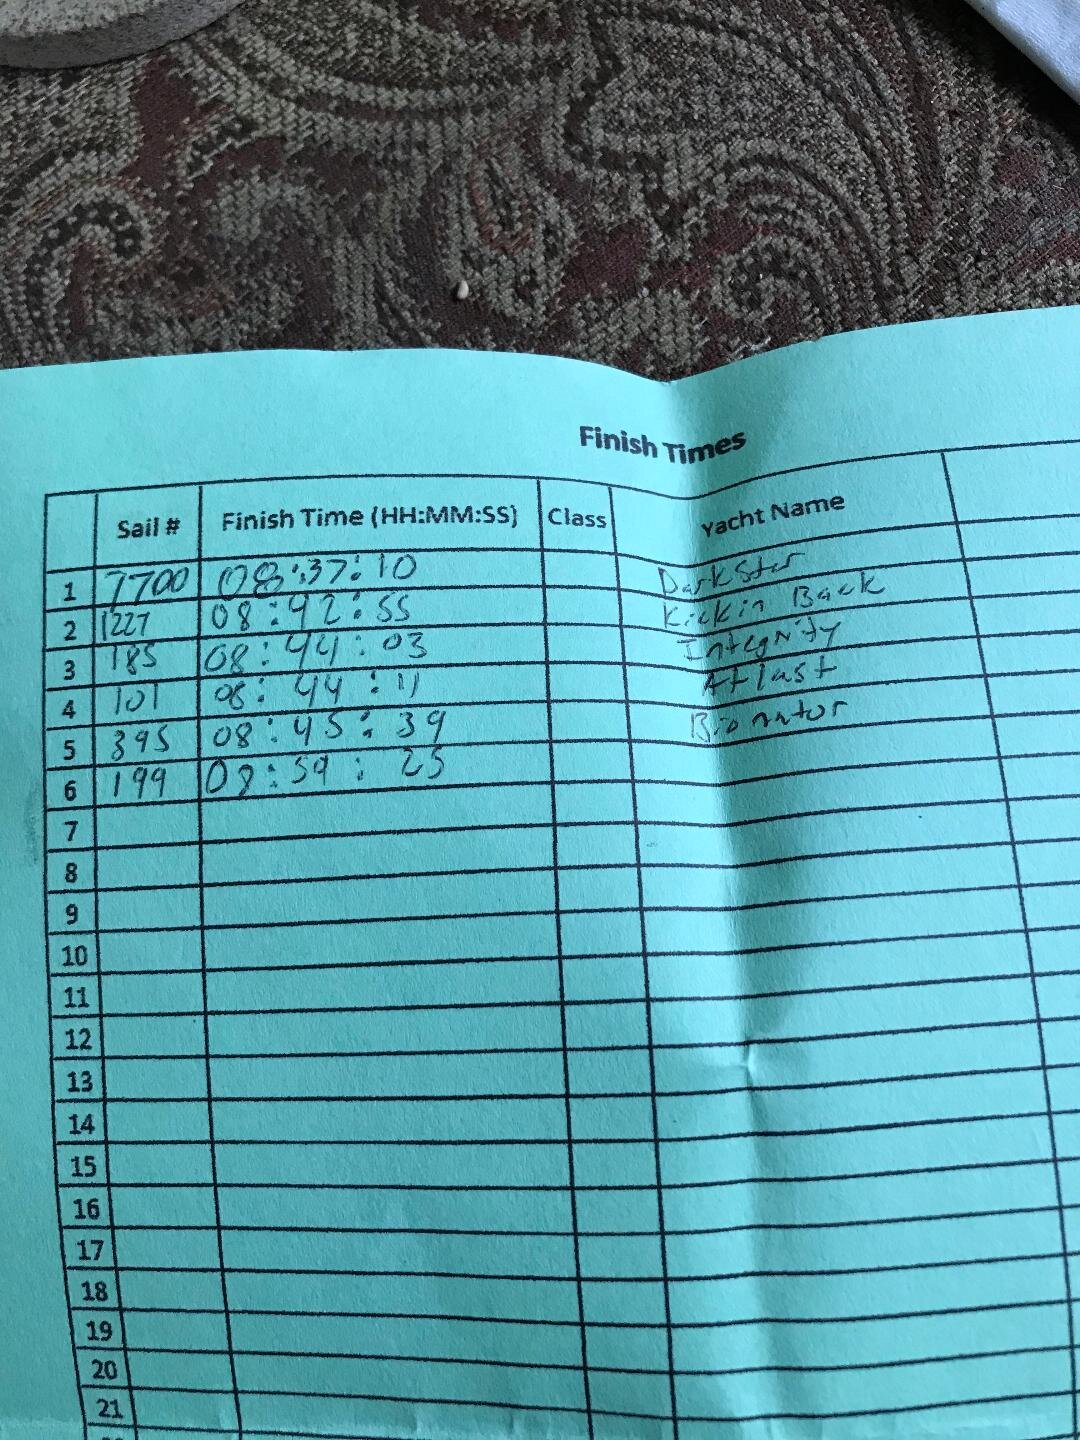 Finish Times
Sail # Finish Time (HH:MM:SS) Class Yacht Name
1 7700 08:37:10 Darkstar
2 1227 08:42:55 Kickin Back
3 185 08:44:03 Integrity
4 101 08:44:11 At last
5 395 08:45:39 Bionator
6 199 08:59:25
7
8
9
10
11
12
13
14
15
16
17
18
19
20
21